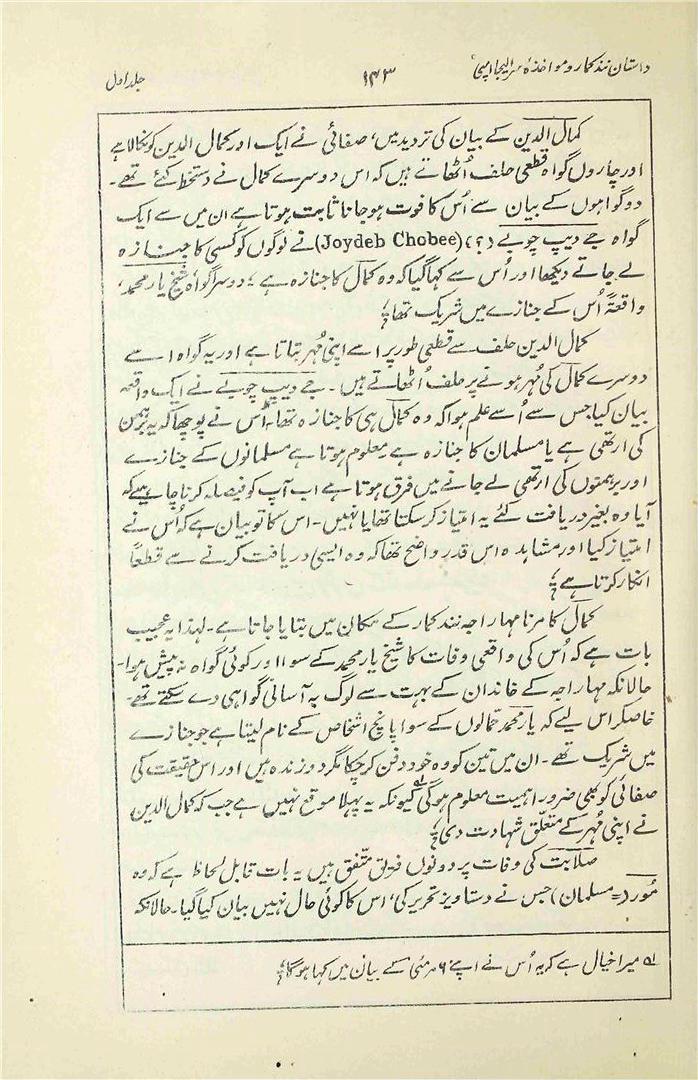 داستان نندکمار و مواخذۂ سر الیجا امپی ۱۴۳ جلد اول
کمال الدین کے بیان کی تردید میں، صفائی نے ایک اور کمال الدین کو نکالا ہے
اور چاروں گواہ قطعی حلف اُٹھاتے ہیں کہ اس دوسرے کمال نے دستخط کئے تھے۔
دو گواہوں کے بیان سے اُس کا فوت ہو جانا ثابت ہوتا ہے ان میں سے ایک
گواہ جے دیپ چوبے (؟) (Joydeb Chobee) نے لوگوں کو کسی کا جنازہ
لے جاتے دیکھا اور اُس سے کہا گیا کہ وہ کمال کا جنازہ ہے؛ دوسرا گواہ شیخ یار محمد،
واقعۃً اُس کے جنازے میں شریک تھا؛
کمال الدین حلف سے قطعی طور پر اسے اپنی مُہر بتاتا ہے اور یہ گواہ اسے
دوسرے کمال کی مُہر ہونے پر حلف اُٹھاتے ہیں۔ جے دیپ چوبے نے ایک واقعہ
بیان کیا جس سے اُسے علم ہوا کہ وہ کمال ہی کا جنازہ تھا۔ اُس نے پوچھا کہ یہ برہمن
کی ارتھی ہے یا مسلمان کا جنازہ ہے۔ معلوم ہوتا ہے مسلمانوں کے جنازے
اور برہمنوں کی ارتھی لے جانے میں فرق ہوتا ہے اب آپ کو فیصلہ کرنا چاہیے کہ
آیا وہ بغیر دریافت کئے یہ امتیاز کر سکتا تھا یا نہیں۔ اس کا تو بیان ہے کہ اُس نے
امتیاز کیا اور مشاہدہ اس قدر واضح تھا کہ وہ ایسی دریافت کرنے سے قطعاً
انکار کرتا ہے؛
کمال کا مرنا مہاراجہ نندکمار کے مکان میں بتایا جاتا ہے۔ لہذا یہ عجیب
بات ہے کہ اُس کی واقعی وفات کا شیخ یار محمد کے سوا اور کوئی گواہ نہ پیش ہوا۔
حالانکہ مہاراجہ کے خاندان کے بہت سے لوگ بہ آسانی گواہی دے سکتے تھے۔
خاصکر اس لیے کہ یار محمد حمّالوں کے سوا پانچ اشخاص کے نام لیتا ہے جو جنازے
میں شریک تھے۔ ان میں تین کو وہ خود دفن کر چکا مگر دو زندہ ہیں اور اس حقیقت کی
صفائی کو بھی ضرور اہمیت معلوم ہوگی لہ کیونکہ یہ پہلا موقع نہیں ہے جب کہ کمال الدین
نے اپنی مُہر کے متعلق شہادت دی؛
صلابت کی وفات پر دونوں فریق متفق ہیں یہ بات قابل لحاظ ہے کہ وہ
مُور (= مسلمان) جس نے دستاویز تحریر کی، اس کا کوئی حال نہیں بیان کیا گیا۔ حالانکہ
لہ میرا خیال ہے کہ یہ اُس نے اپنے ۶ مئی کے بیان میں کہا ہوگا؛